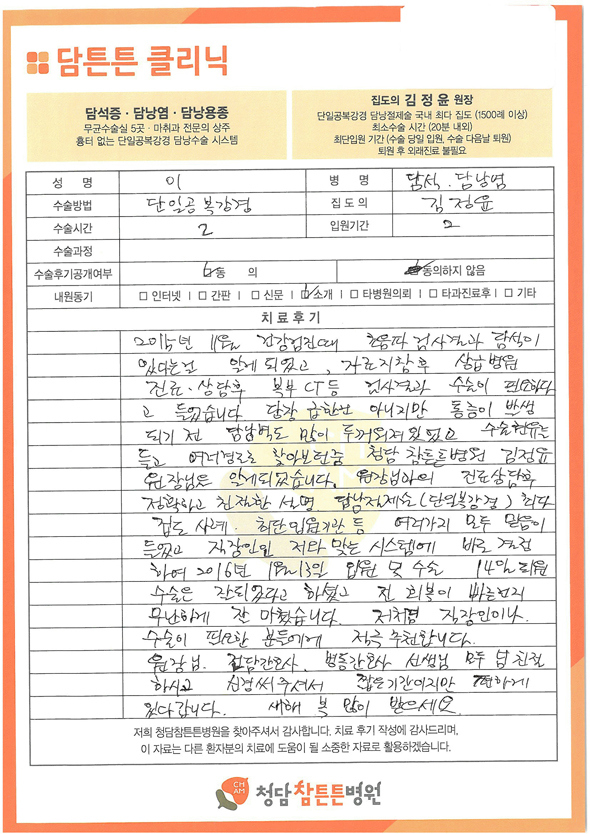 담튼튼 클리닉
담석증 · 담낭염 · 담낭용종
무균수술실 5곳 · 마취과 전문의 상주
흉터 없는 단일공복강경 담낭수술 시스템
집도의 김정윤 원장
단일공복강경 담낭절제술 국내 최다 집도 (1500례 이상)
최소수술 시간 (20분 내외)
최단입원 기간 (수술 당일 입원, 수술 다음날 퇴원)
퇴원 후 외래진료 불필요
성 명 이 병 명 담석. 담낭염
수술방법 단일공복강경 집 도 의 김정윤
수술시간 2 입원기간 2
수술과정
수술후기공개여부 동 의 동의하지 않음
내원동기 □ 인터넷 | □ 간판 | □ 신문 | ☑ 소개 | □ 타병원의뢰 | □ 타과진료후 | □ 기타
치 료 후 기
2015년 11월 건강검진때 초음파 검사결과 담석이
있다는걸 알게 되었고, 자료지참후 상급병원
진료·상담후 복부 CT등 검사결과 수술이 필요하다
고 들었습니다. 당장 급한건 아니지만 통증이 발생
되기 전 담낭벽도 많이 두꺼워져 있었고 수술
들고 여러경로로 찾아보던중 청담 참튼튼병원 김정윤
원장님을 알게되었습니다. 원장님과의 진료상담후
정확하고 친절한 설명 담낭절제술(단일복강경) 최다
집도 사례. 최단입원기간 등 여러가지 모두 믿음이
들었고 직장인인 저와 맞는 시스템에 바로 결정
하여 2016년 1월13일 입원 및 수술 14일 퇴원
수술은 잘되었다고 하셨고 전 회복이 빠른편
무난하게 잘 마쳤습니다. 저처럼 직장인이나
수술이 필요한 분들에게 적극 추천합니다.
원장님. 전담간호사. 병동간호사 선생님 모두 넘 친절
하시고 신경써주셔서 짧은기간이지만 편하게
있다갑니다. 새해 복 많이 받으세요.
저희 청담참튼튼병원을 찾아주셔서 감사합니다. 치료 후기 작성에 감사드리며,
이 자료는 다른 환자분의 치료에 도움이 될 소중한 자료로 활용하겠습니다.
CH AM 청담참튼튼병원